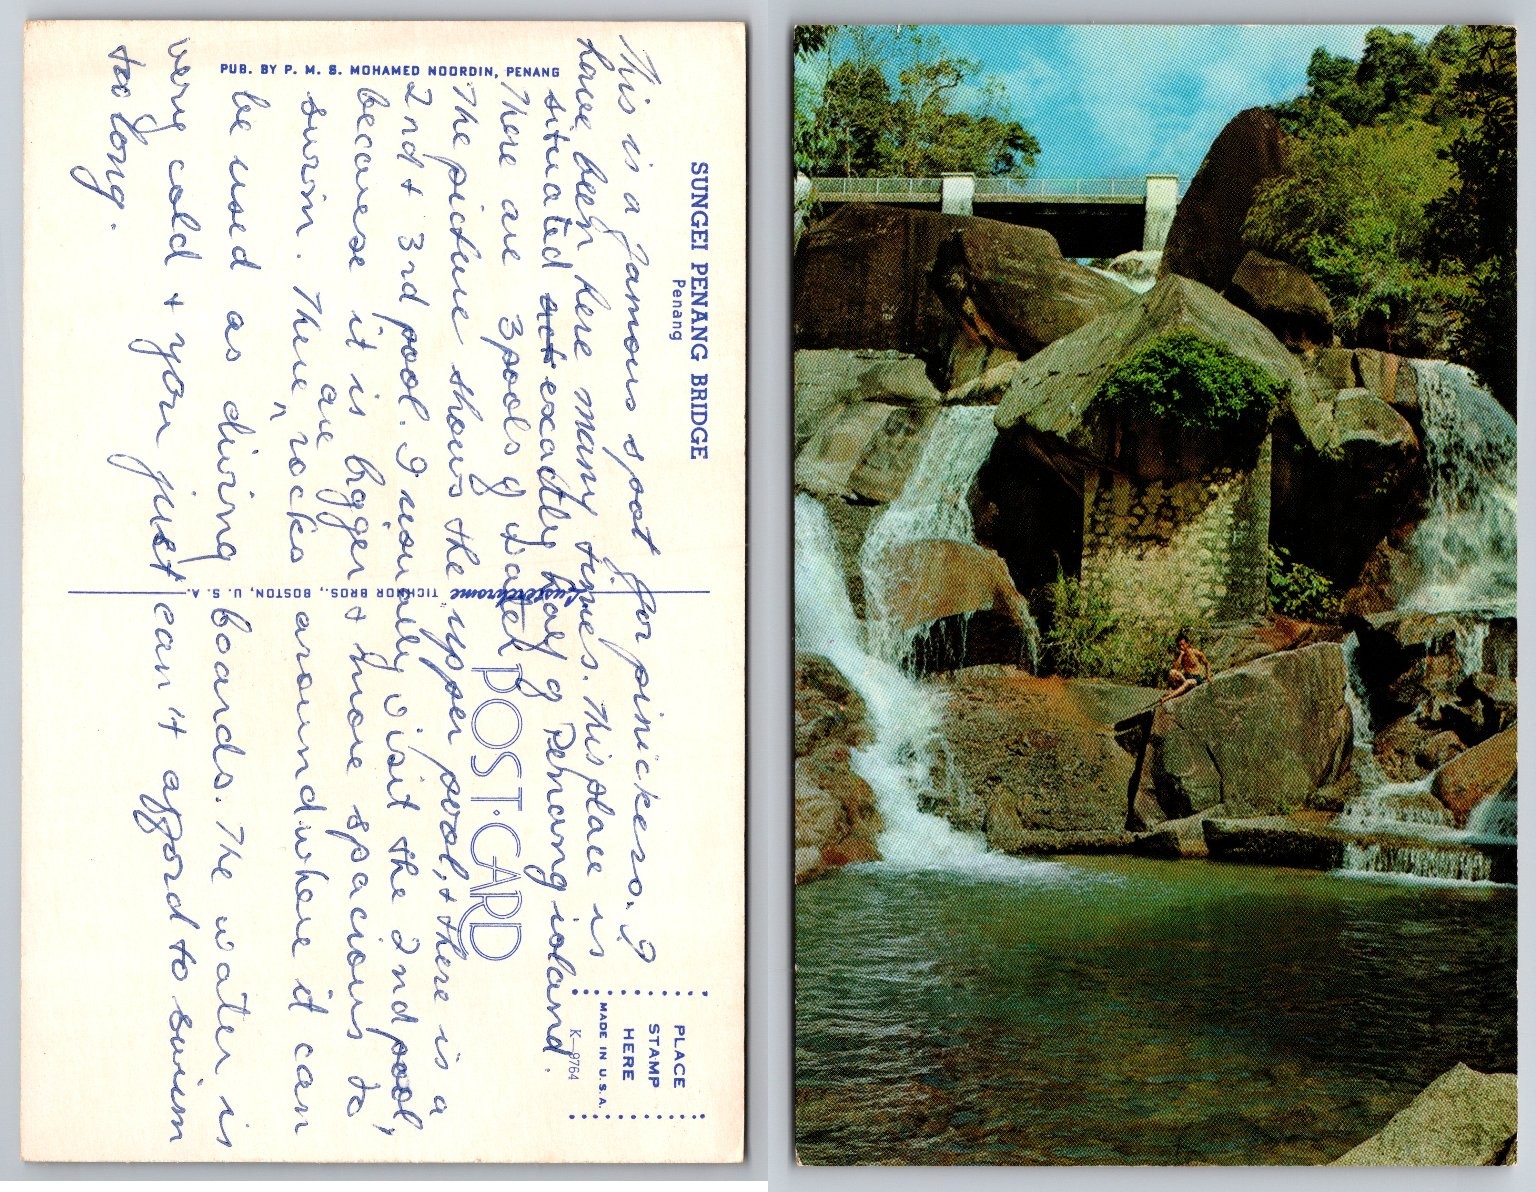 SUNGEI PENANG BRIDGE
Penang
PUB. BY P. M. S. MOHAMED NOORDIN, PENANG
Lusterchrome TICHNOR BROS., BOSTON, U. S. A.
POST CARD
PLACE
STAMP
HERE
MADE IN U.S.A.
K-9764
This is a famous spot for pinickers. I
have been here many times. This place is
situated not exactly half of Penang island.
There are 3 pools of water
The picture shows the upper pool, + there is a
2nd + 3rd pool. I usually visit the 2nd pool,
because it is bigger + more spacious to
swim. There are rocks around where it can
be used as diving boards. The water is
very cold + you just can't afford to swim
too long.